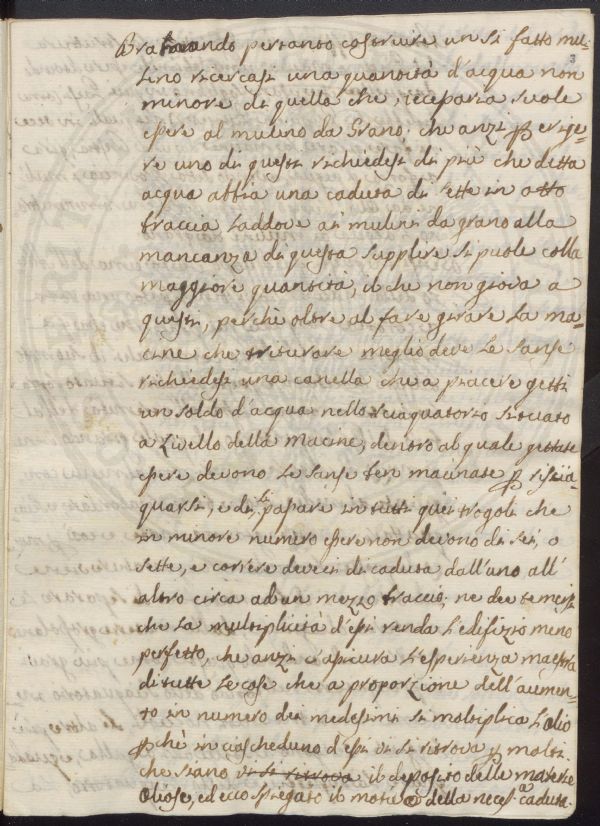 Bramando pertanto costruire un si fatto mu-
lino ricercasi una quantità d'acqua non
minore di quella che, receparia suole
essere al mulino da Grano; che anzi p erige-
re uno di questi richiedesi di più che detta
acqua abbia una caduta di sette in otto
braccia laddove ai mulini da grano alla
mancanza di questa supplire si puole colla
maggiore quantità, il che non giova a
questi, perchè oltre al fare girare la ma-
cine che triturare meglio deve le sanse
richiedesi una canella che a piacere getti
un soldo d'acqua nello sciaquatorio situato
a livello della macine, dentro al quale gettate
essere devono le sanse ben macinate p risia-
quarsi, e di lì passare in tutti quei trogoli che
in minore numero essere non devono di sei, o
sette, e correre deveci di caduta dall'uno all'
altro circa ad un mezzo braccio, ne dee temersi
che la multiplicità d'essi renda l'edifizio meno
perfetto, che anzi ci assicura l'esperienza maestra
di tutte le cose che a proporzione dell'aumen-
to in numero dei medesimi si moltiplica l'olio
pchè in ciascheduno d'essi vi si ritrova p molti
che siano vi si ritrova il deposito delle materie
oliose, ed ecco spiegato il motivo della neces.a caduta.
3